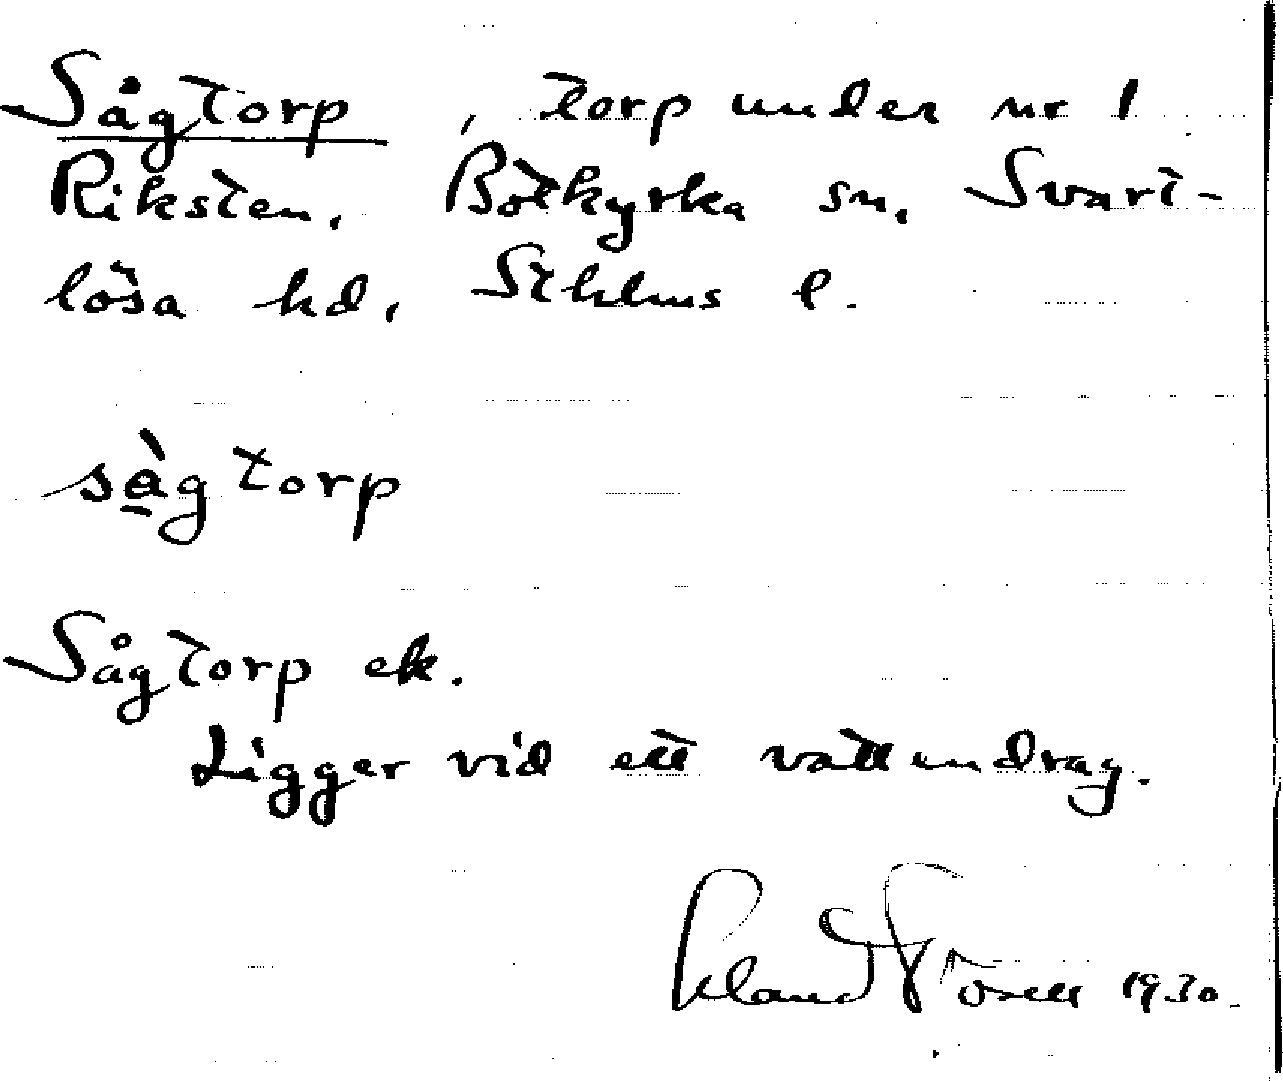 Sågtorp, torp under nr 1
Riksten, Botkyrka sn, Svart-
lösa hd, Sthlms l.
så̀gtorp
Sågtorp ek.
Ligger vid ett vattendrag.
1930.